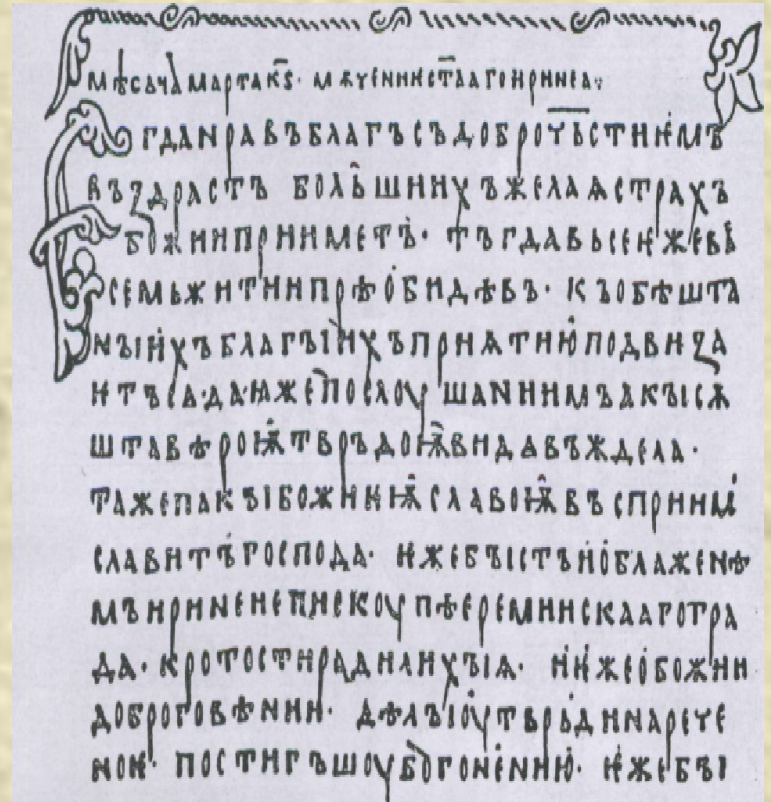 мѣсѧца марта к҃ѕ· мѫчениѥ ст҃ааго иринеа·
Ѥгда нравъ благъ съ доброч҃ьстиимъ
въздрастъ большиихъ желаѧ страхъ
божии прииметъ· тъгда вьсе иже вь
семь житии прѣобидѣвъ· къ обѣшта
ныихъ благыихъ приѧтию подвиза
итъ сѧ· да ꙗже послоушаниимъ акы сѫ
шта вѣроѭ тврьдоѭ видавъ ждела·
таже пакы божииѭ славоѭ въсприимъ
славитъ господа· иже быстъ и о блаженѣ
мъ иринеи епискоупѣ еремиискааго гра
да· кротости ради лихыѧ· и иже о божии
доброговѣнии· дѣлы оутврьди нарече
ное· постигъшоу бо гонению· иже бы